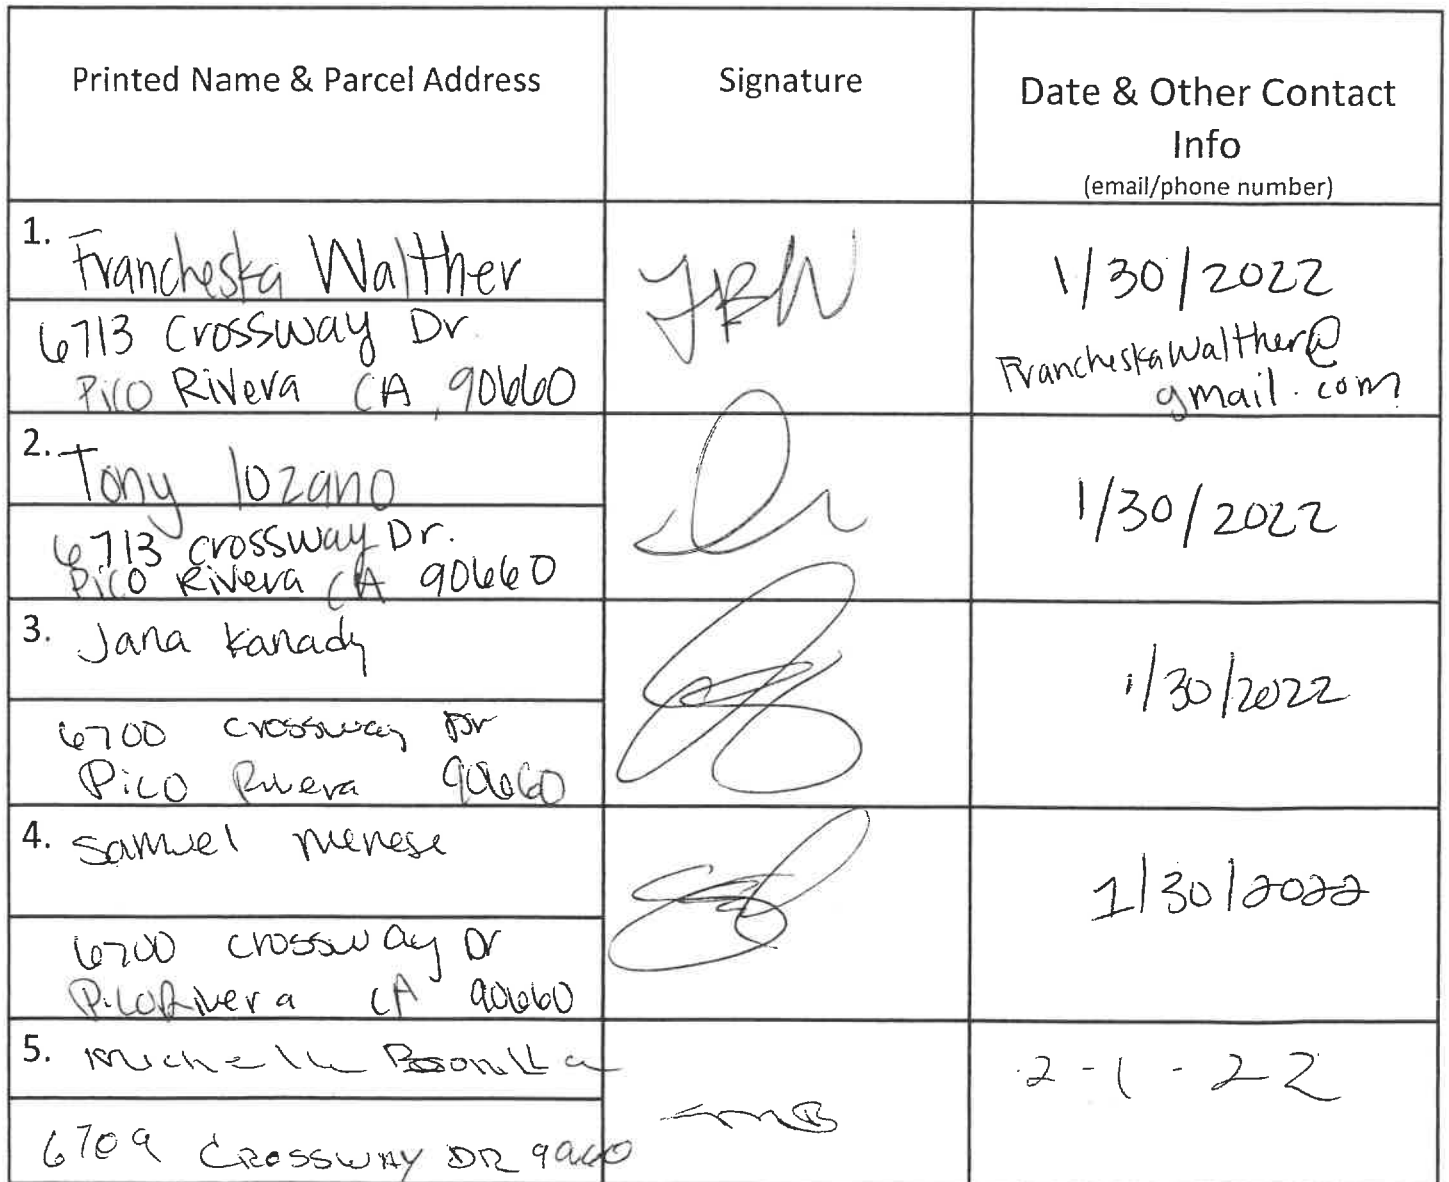 Printed Name & Parcel Address
Signature
Date & Other Contact
Info
(email/phone number)
1. Francheska Walther
6713 Crossway Dr.
Pico Rivera CA, 90660
FBW
1/30/2022
FrancheskaWalther@
gmail.com
2. Tony lozano
6713 crossway Dr.
Pico Rivera CA 90660
1/30/2022
3. Jana Kanady
6700 crossway Dr
Pico Rivera 90660
1/30/2022
4. Samuel menese
6700 crossway Dr
Pico Rivera CA 90660
1/30/2022
5. Michelle Bonilla
6709 CROSSWAY DR
MB
2-1-22